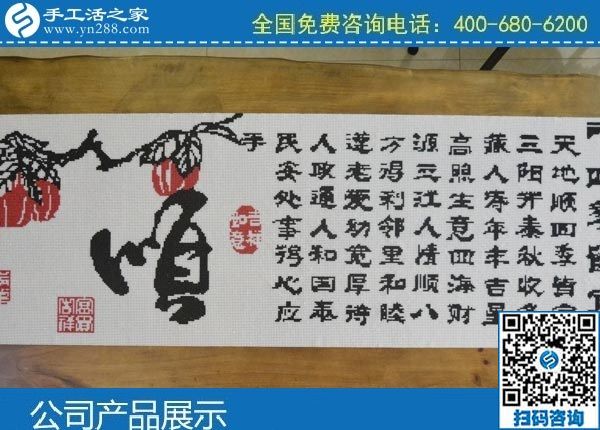 手工活之家
www.yn288.com
全国免费咨询电话：400-680-6200
天地顺四季皆
三阳开泰秋收冬
藏人寿年丰吉星
高照生意四海财
源三江人情顺八
方得利邻里和睦
尊老爱幼宽厚待
人政通人和国泰
民安处事称心应
手
吉祥如意
順
公司产品展示
扫码咨询